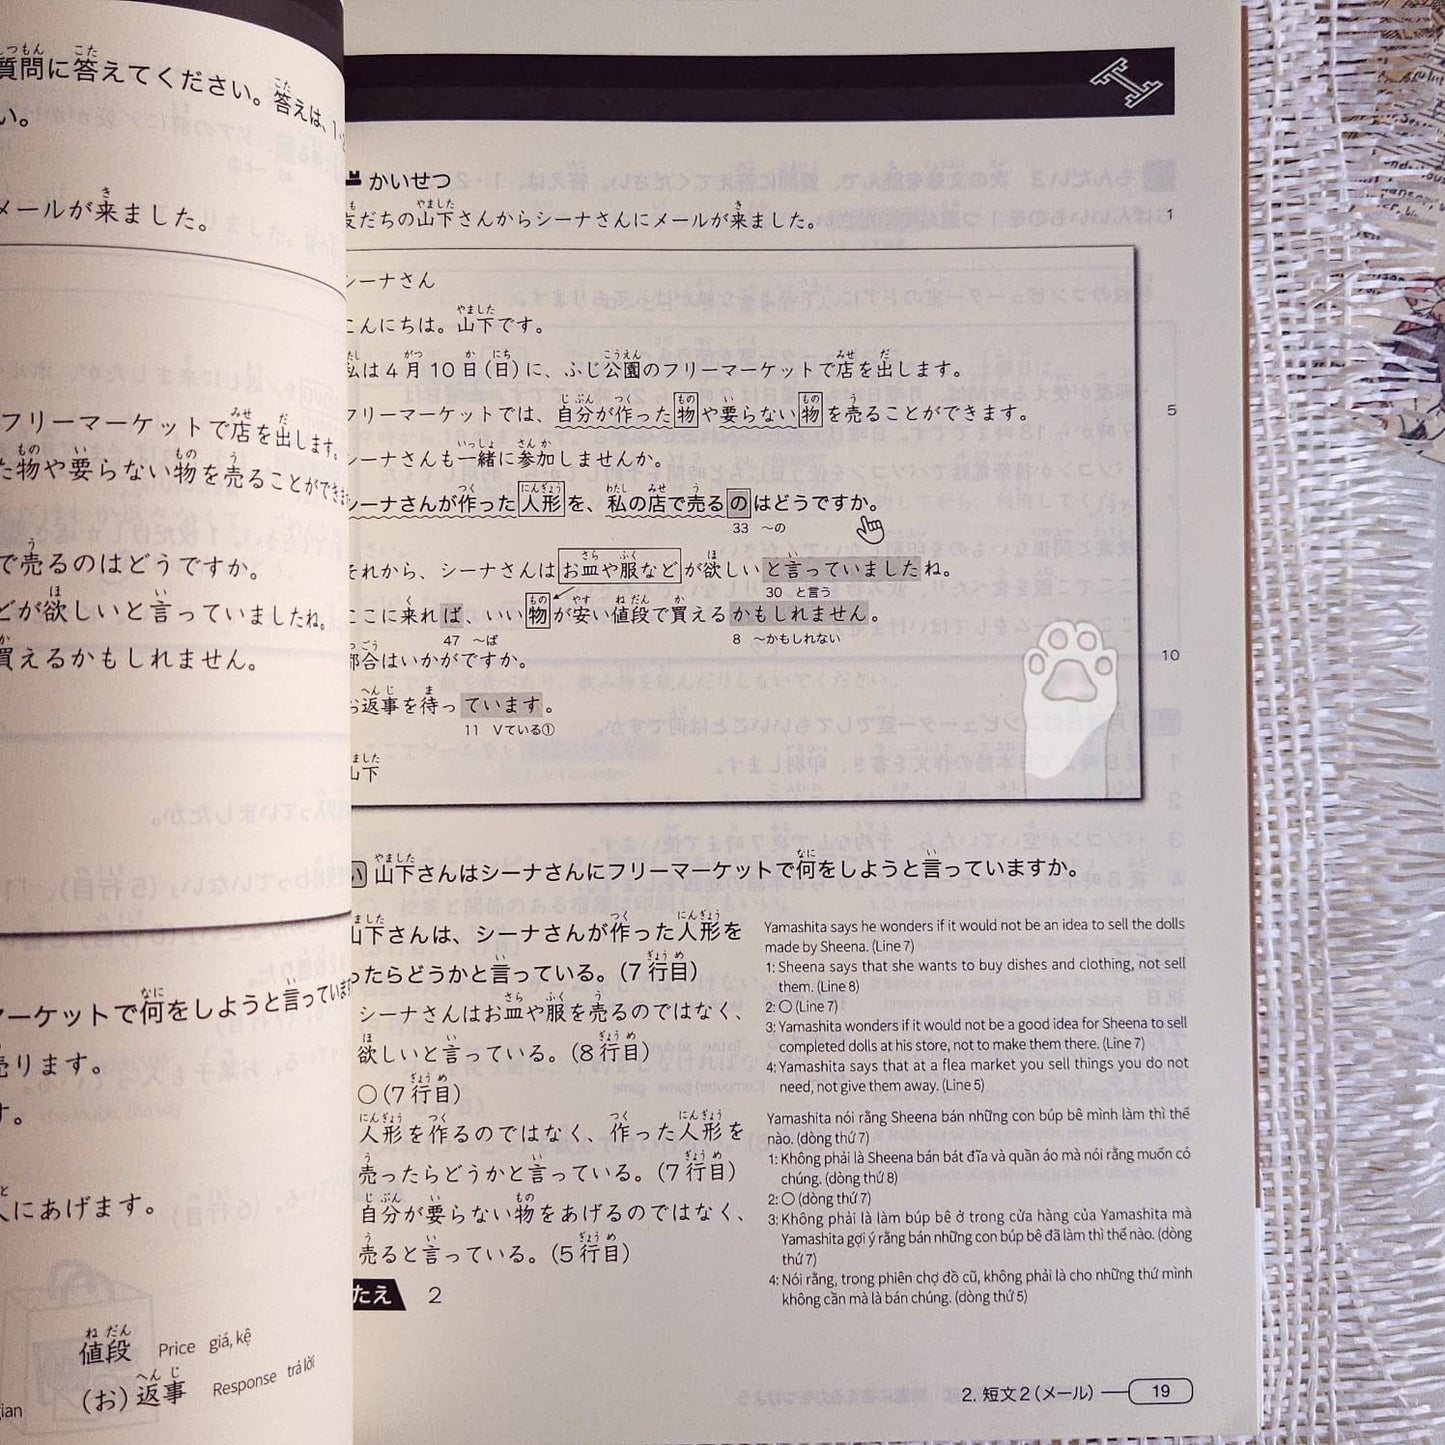 質問に答えてください。答えは、1・
い。
メールが来ました。
フリーマーケットで店を出します。
た物や要らない物を売ることができま
で売るのはどうですか。
どが欲しいと言っていましたね。
買えるかもしれません。
マーケットで何をしようと言っていま
売ります。
す。
人にあげます。
値段 Price giá, kệ
(お)返事 Response trả lời
gian
かいせつ
友だちの山下さんからシーナさんにメールが来ました。 1
シーナさん
こんにちは。山下です。
私は4月10日(日)に、ふじ公園のフリーマーケットで店を出します。
フリーマーケットでは、自分が作った物や要らない物を売ることができます。 5
シーナさんも一緒に参加しませんか。
シーナさんが作った人形を、私の店で売るのはどうですか。
33 〜の
それから、シーナさんはお皿や服などが欲しいと言っていましたね。
30 と言う
ここに来れば、いい物が安い値段で買えるかもしれません。
47 〜ば 8 〜かもしれない
都合はいかがですか。 10
お返事を待っています。
11 Vている①
山下
い 山下さんはシーナさんにフリーマーケットで何をしようと言っていますか。
山下さんは、シーナさんが作った人形を
ったらどうかと言っている。(7行目)
シーナさんはお皿や服を売るのではなく、
欲しいと言っている。(8行目)
○(7行目)
人形を作るのではなく、作った人形を
売ったらどうかと言っている。(7行目)
自分が要らない物をあげるのではなく、
売ると言っている。(5行目)
たえ 2
Yamashita says he wonders if it would not be an idea to sell the dolls
made by Sheena. (Line 7)
1: Sheena says that she wants to buy dishes and clothing, not sell
them. (Line 8)
2: ○ (Line 7)
3: Yamashita wonders if it would not be a good idea for Sheena to sell
completed dolls at his store, not to make them there. (Line 7)
4: Yamashita says that at a flea market you sell things you do not
need, not give them away. (Line 5)
Yamashita nói rằng Sheena bán những con búp bê mình làm thì thế
nào. (dòng thứ 7)
1: Không phải là Sheena bán bát đĩa và quần áo mà nói rằng muốn có
chúng. (dòng thứ 8)
2: ○ (dòng thứ 7)
3: Không phải là làm búp bê ở trong cửa hàng của Yamashita mà
Yamashita gợi ý rằng bán những con búp bê đã làm thì thế nào. (dòng
thứ 7)
4: Nói rằng, trong phiên chợ đồ cũ, không phải là cho những thứ mình
không cần mà là bán chúng. (dòng thứ 5)
2. 短文2(メール) 19